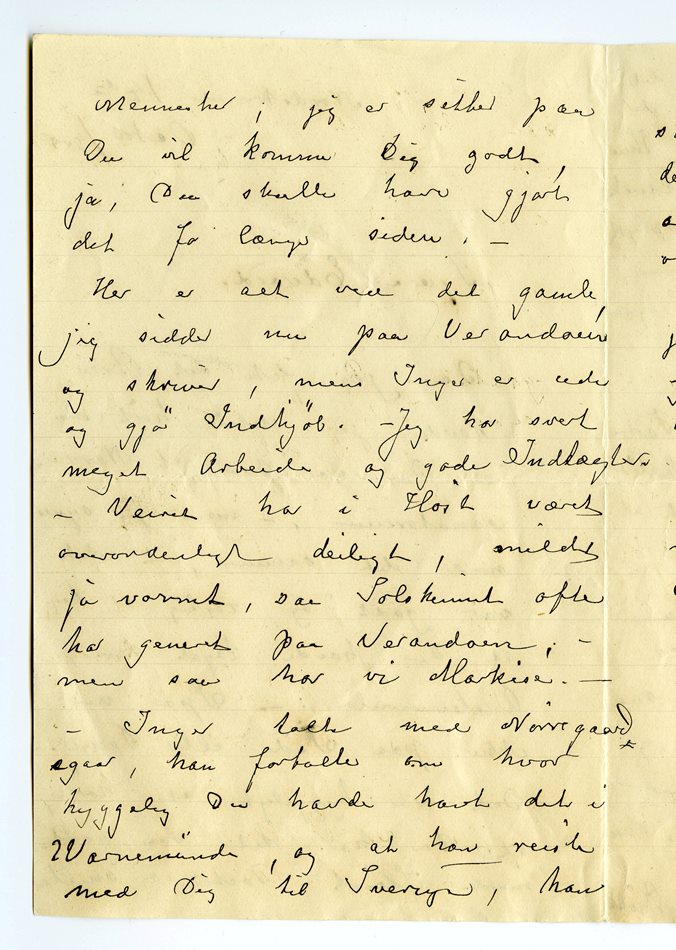 Mennesker, jeg er sikker paa
Du vil komme Dig godt,
ja, Du skulle have gjort
det for længe siden. –
Her er alt ved det gamle,
jeg sidder nu paa Verandaen
og skriver, mens Inger er ude
og gjør Indkjøb. – Jeg har svert
meget Arbeide og gode Indtægter.
– Veiret har i Høst været
overordenligt deiligt, mildt
ja varmt, saa Solskinnet ofte
har generet paa Verandaen, –
men saa har vi Markise. –
– Inger talte med Nörregaard
igaar, han fortalte om hvor
hyggelig Du havde havt det i
Warnemünde, og at han reiste
med Dig til Sverige, han